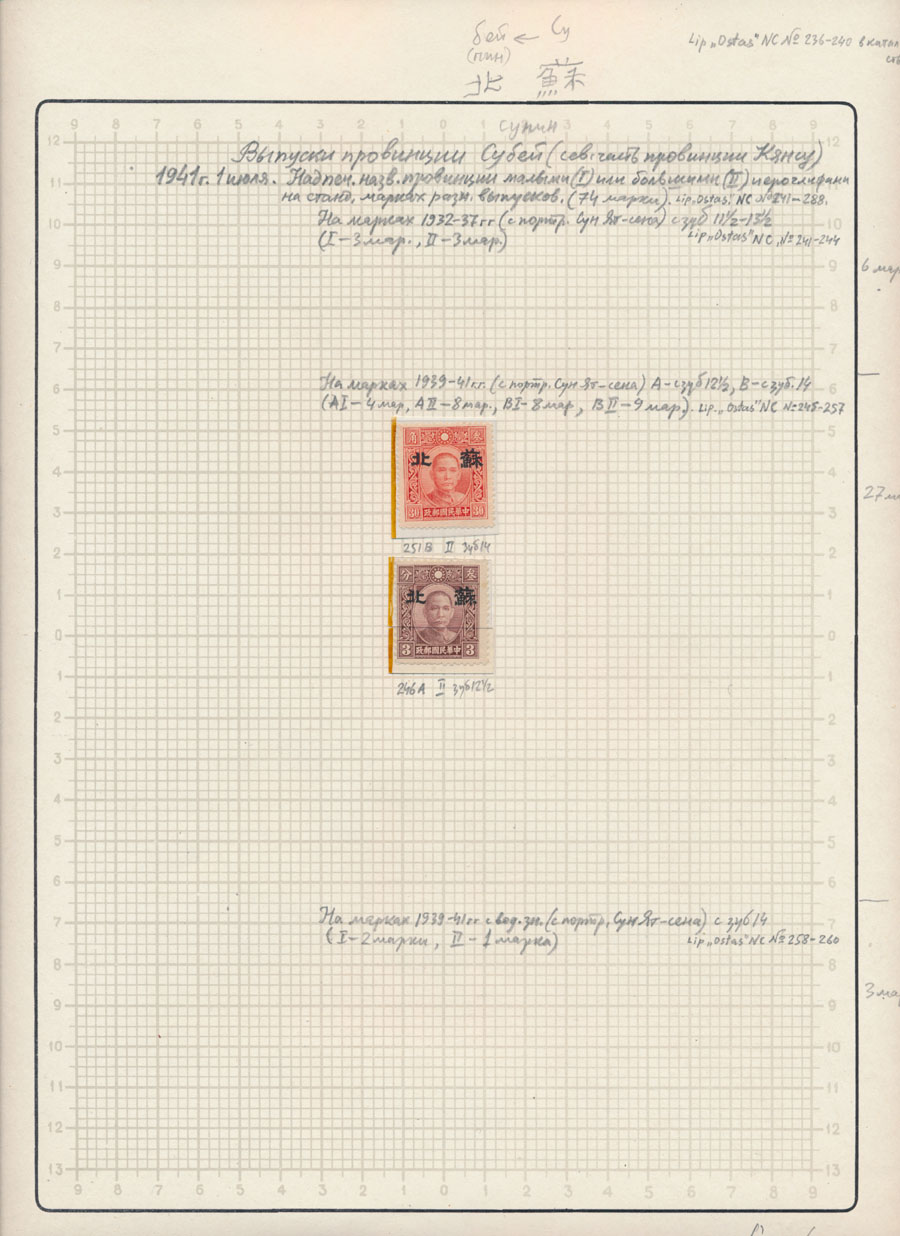 бей ← Су
(пин)
北 蘇
Lip „Ostas" NC № 236-240 в
сунин
Выпуски провинции Субей (сев. часть провинции Кянсу)
1941 г. 1 июля. Надпеч. назв. провинции малыми (I) или большими (II) иероглифами
на станд. марках разн. выпусков. (74 марки). Lip „Ostas", NC № 241-288.
На марках 1932-37 гг (с портр. Сун Ят-сена) с зуб 11½-13½
(I-3 мар., II-3 мар.) Lip „Ostas" NC, № 241-244
6 мар
На марках 1939-41 гг. (с портр. Сун Ят-сена) А-с зуб 12½, В-с зуб. 14
(AI-4 мар, AII-8 мар., BI-8 мар, BII-9 мар.). Lip. „Ostas" NC № 245-257
北 蘇
30 政郵國民華中 30
27
251 B II зуб 14
分 叁
北 蘇
3 政郵國民華中 3
246 A II зуб 12½
На марках 1939-41 гг с вод. зн. (с портр. Сун Ят-сена) с зуб 14
(I-2 марки, II-1 марка) Lip „Ostas" NC № 258-260
3 мар
9 8 7 6 5 4 3 2 1 0 1 2 3 4 5 6 7 8 9
12 11 10 9 8 7 6 5 4 3 2 1 0 1 2 3 4 5 6 7 8 9 10 11 12 13